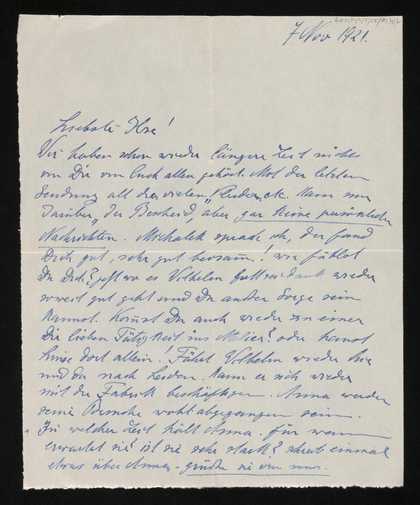 7 Nov 1921.
Liebste Ilse!
Wir haben schon wieder längere Zeit nichts
von Dir von Euch allen gehört. Mit der letzten
Sendung all der vielen
Darüber der Bescheid, aber gar keine persönliche
Nachrichten. Michalek sprach ich, der fand
Dich gut, sehr gut! wie fühlst
Du Dich? jetzt wo es Wilhelm Gott sei dank wieder
soweit gut geht und Du außer Sorge sein
kannst. Kommst Du auch wieder zu einer
Dir lieben Tätigkeit ins Atelier? oder kannst
dort allein! Fährt Wilhelm wieder hin
und nach Leiden. Kann er sich wieder
mit der Fabrik beschäftigen. Anna werden
seine Wünsche wohl abgegangen sein.
In welcher Zeit hält Anna. für wann
erwartet sie? ist sie sehr stark? schreib einmal
etwas über Anna - grüße sie von mir.